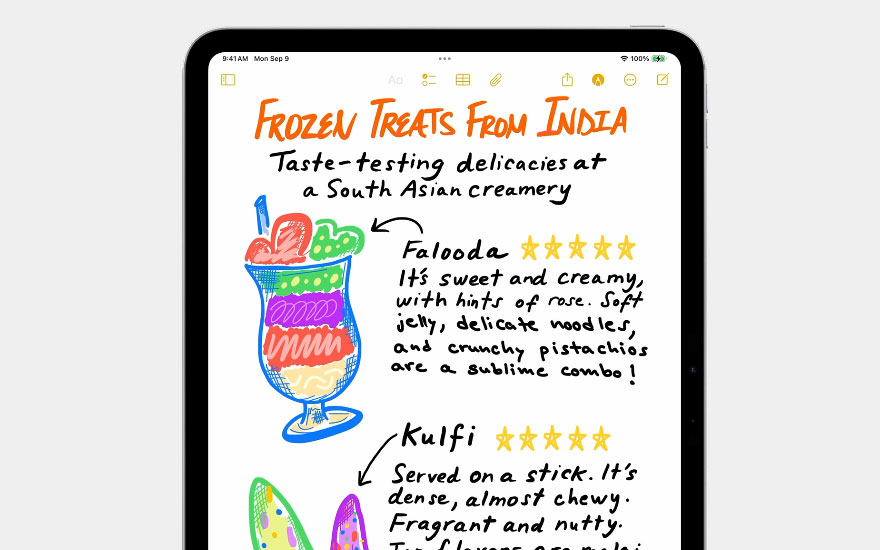 9:41 AM Mon Sep 9
100%
Aa
FROZEN TREATS FROM INDIA
Taste-testing delicacies at
a South Asian creamery
Falooda
It's sweet and creamy,
with hints of rose. Soft
jelly, delicate noodles,
and crunchy pistachios
are a sublime combo!
Kulfi
Served on a stick. It's
dense, almost chewy.
Fragrant and nutty.